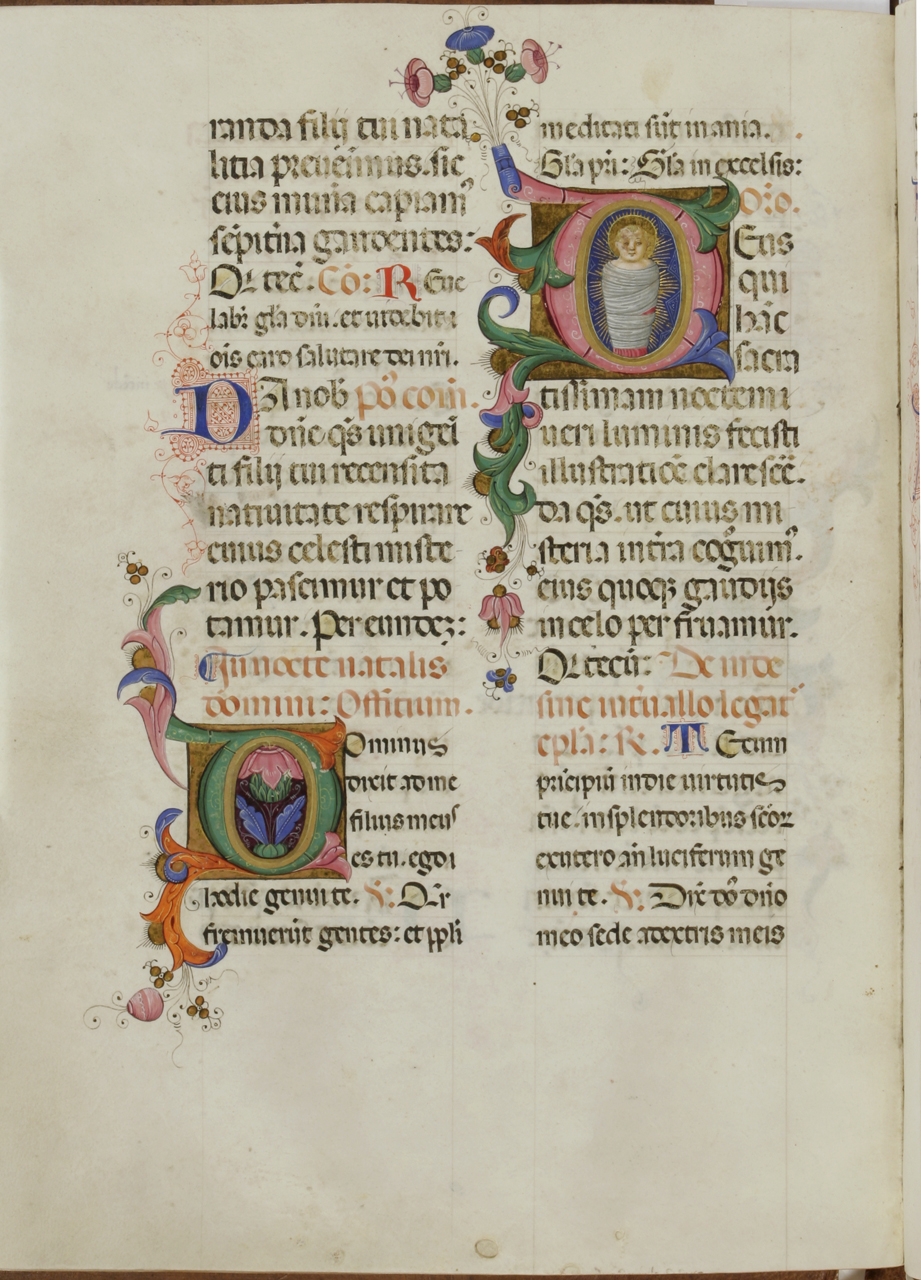 randa filij tui nata
litia preueĩmus. sic
eius munĩa capiam᷒
sẽpitña gaudentes:
Q̃i tec̃. Cõ: Reue
labiť gl̃a dñi. et uidebit
oĩs caro salutare dei nr̃i.
DA nob̃ põ com̃.
dñe q̃s unigeĩ
ti filij tui recensita
natiuitate respirare
cuius celesti miste
rio pascimur et po
tamur. Per eundeʒ:
In nocte natalis
domini: Officium.
Dominus
dixit ad me
filius meus
es tu. ego
hodie genui te. V̈: Qr̃
fremuerũt gentes: et ppl̃i
meditati sũt inania.
Gl̃a pr̃i: Gl̃a in excelsis:
Oŕo.
Deus
qui
hãc
sacra
tissimam noctem
ueri luminis fecisti
illustratiõe claresc̃e.
da q̃s. ut cuius mi
steria in terra cog̃uim᷒.
eius quoqʒ gaudijs
in celo per fruamur.
Q̃i tecũ: De inde
sine interuallo legat᷒
epl̃a: R̃. Tecum
prĩcipiũ in die uirtutis
tue. in splendoribus scõr
ex utero añ luciferum ge
nui te. V̈: Dix̃ dõ dño
meo sede a dextris meis